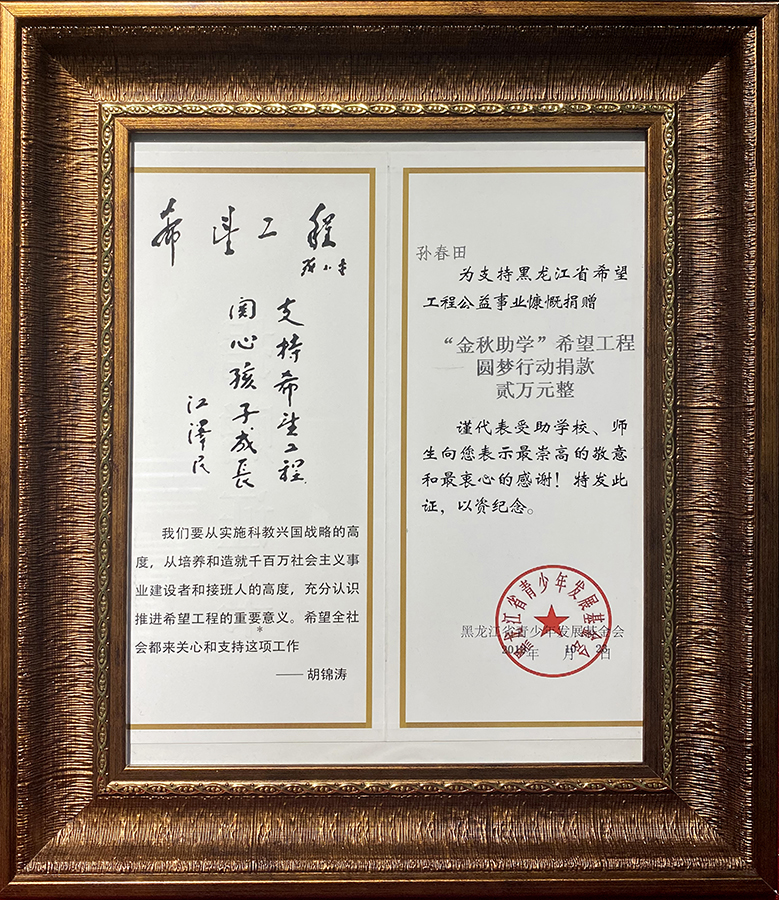 希望工程
邓小平
支持希望工程
关心孩子成長
江澤民
我们要从实施科教兴国战略的高
度，从培养和造就千百万社会主义事
业建设者和接班人的高度，充分认识
推进希望工程的重要意义。希望全社
会都来关心和支持这项工作
—— 胡锦涛
孙春田
为支持黑龙江省希望
工程公益事业慷慨捐赠
“金秋助学”希望工程
圆梦行动捐款
贰万元整
谨代表受助学校、师
生向您表示最崇高的敬意
和最衷心的感谢！特发此
证，以资纪念。
黑龙江省青少年发展基金会
黑龙江省青少年发展基金会
年 10月 日